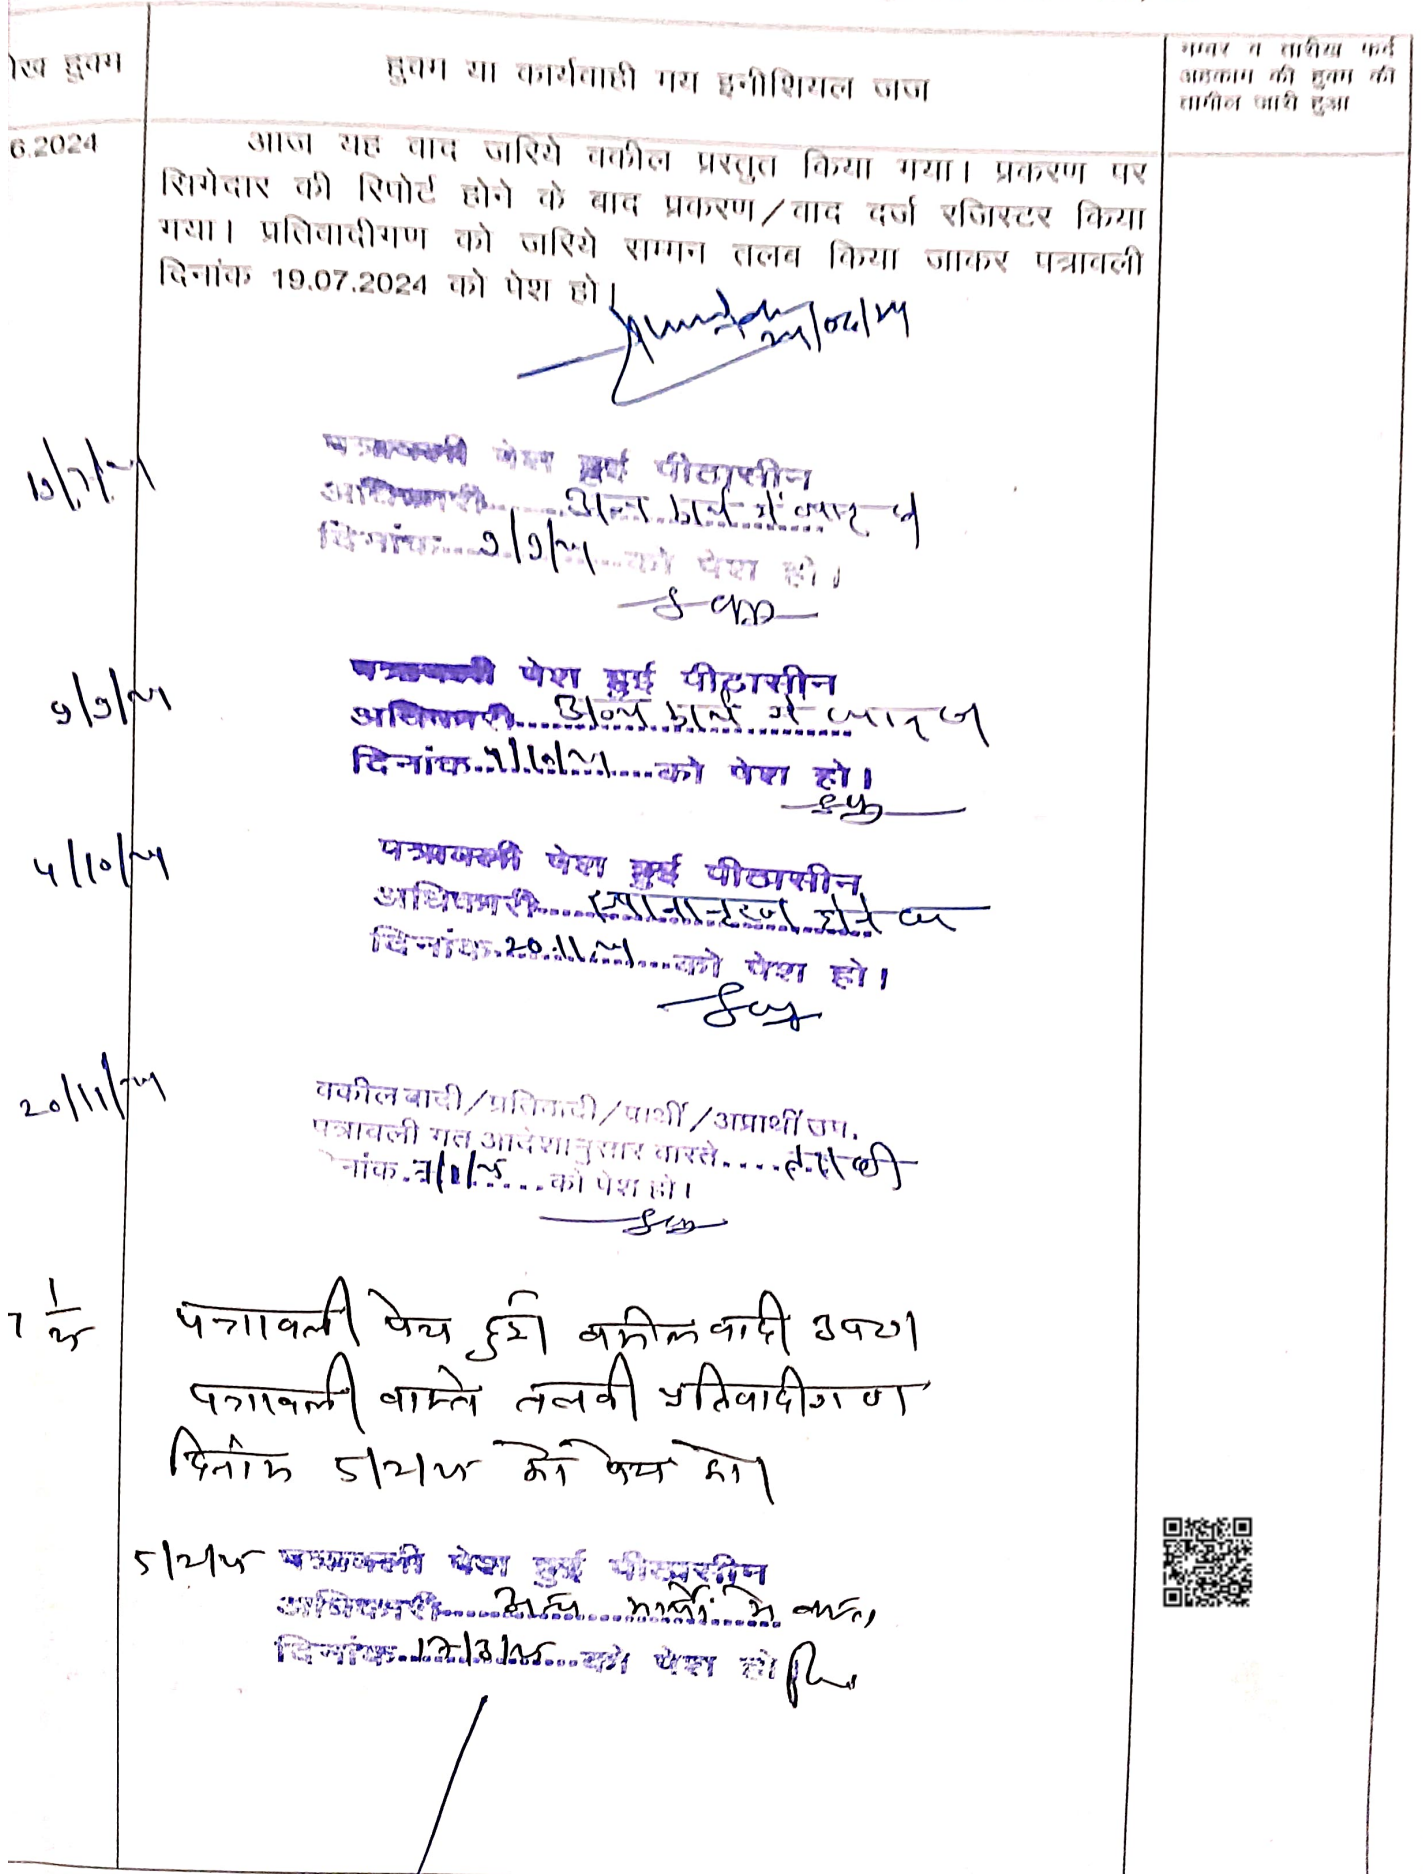 ेख हुक्म
हुक्म या कार्यवाही मय इनीशियल जज
नम्बर व तारीख फर्द
अहकाम की हुक्म की
तामील जारी हुआ
6.2024
आज यह वाद जरिये वकील प्रस्तुत किया गया। प्रकरण पर
सिगेदार की रिपोर्ट होने के बाद प्रकरण/वाद दर्ज रजिस्टर किया
गया। प्रतिवादीगण को जरिये सम्मन तलब किया जाकर पत्रावली
दिनांक 19.07.2024 को पेश हो।
पत्रावली पेश हुई पीठासीन
अधिकारी...... अन्य कार्य में व्यस्त
दिनांक... 9/9/24 ...को पेश हो।
9/9/24
पत्रावली पेश हुई पीठासीन
अधिकारी...... अन्य कार्य में व्यस्त
दिनांक.........को पेश हो।
4/10/24
पत्रावली पेश हुई पीठासीन
अधिकारी..... स्थानान्तरण होने
दिनांक. 20.11.24 ....को पेश हो।
20/11/24
वकील वादी/प्रतिवादी/प्रार्थी/अप्रार्थी उप.
पत्रावली गत आदेशानुसार वास्ते..... तलबी
नांक. 7/1/25 ....को पेश हो।
7 1/25
पत्रावली पेश हुई वकील वादी उपरा
पत्रावली वास्ते तलबी प्रतिवादीगण
दिनांक 5/2/25 को पेश हो।
5/2/25
पत्रावली पेश हुई पीठासीन
अधिकारी..... अन्य कार्यों में व्यस्त
दिनांक.. 17/3/25 ....को पेश हो